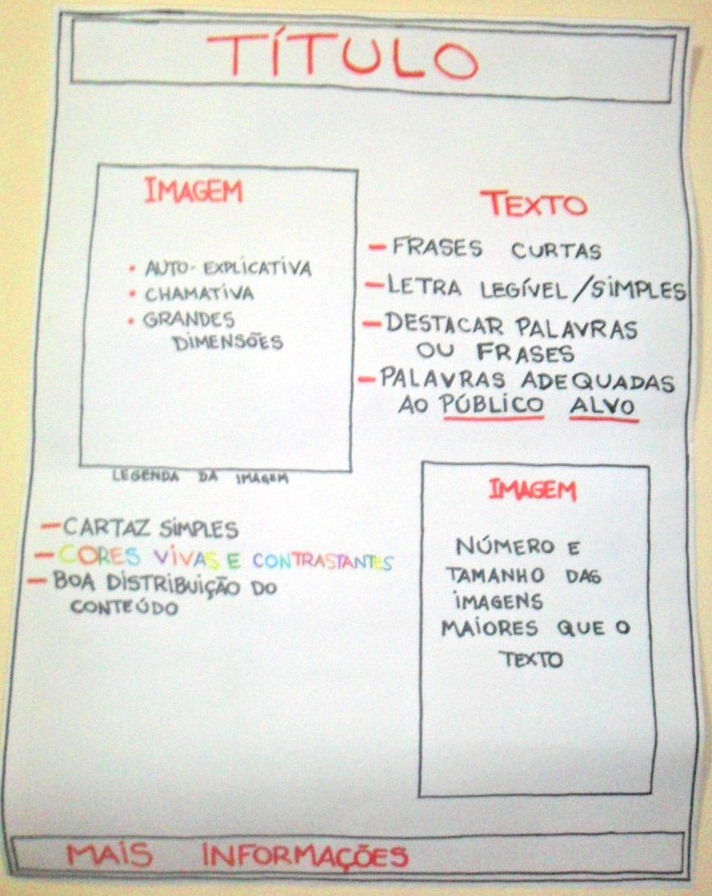 TÍTULO
IMAGEM
• AUTO-EXPLICATIVA
• CHAMATIVA
• GRANDES
DIMENSÕES
LEGENDA DA IMAGEM
TEXTO
- FRASES CURTAS
- LETRA LEGÍVEL/SIMPLES
- DESTACAR PALAVRAS
OU FRASES
- PALAVRAS ADEQUADAS
AO PÚBLICO ALVO
- CARTAZ SIMPLES
- CORES VIVAS E CONTRASTANTES
- BOA DISTRIBUIÇÃO DO
CONTEÚDO
IMAGEM
NÚMERO E
TAMANHO DAS
IMAGENS
MAIORES QUE O
TEXTO
MAIS INFORMAÇÕES